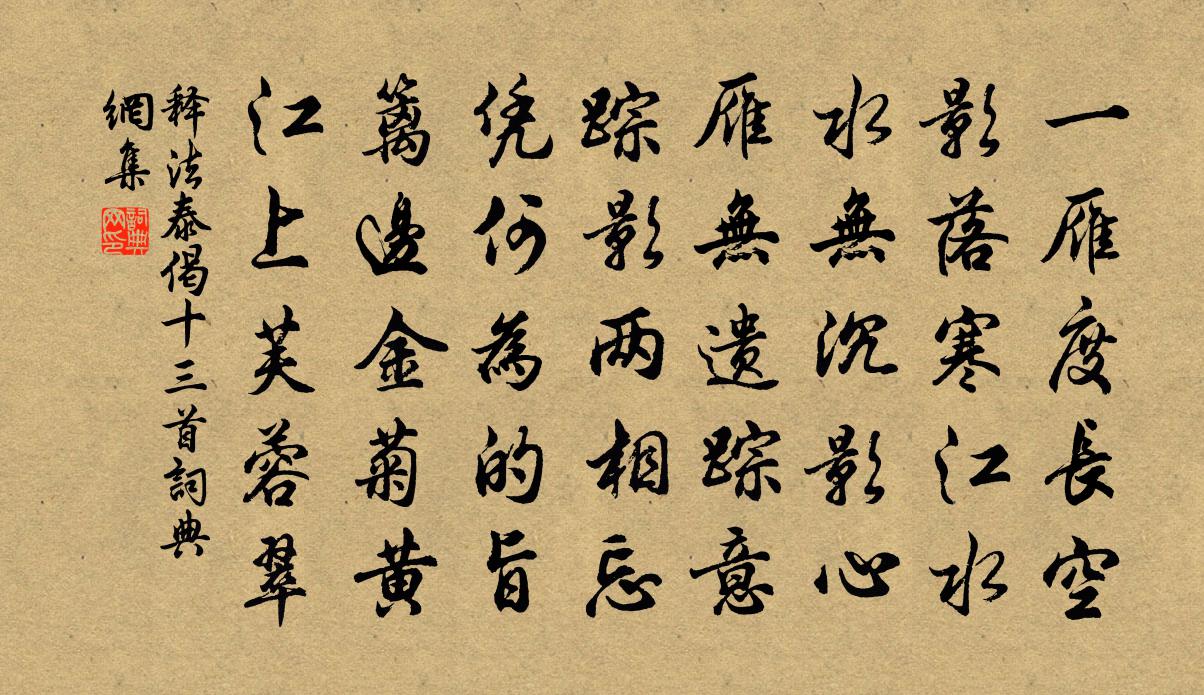 一雁度長空
影落寒江水
水無沉影心
雁無遺踪意
踪影两相忘
凭何為的旨
籬邊金菊黄
江上芙蓉翠
释法泰偈十三首詞典
網集
詞典
网印